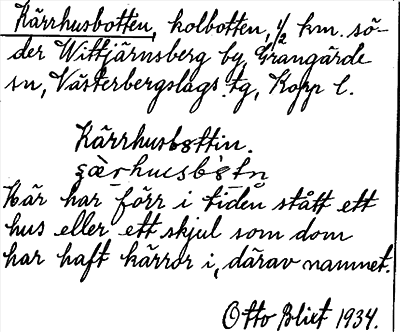 Kärrhusbotten, kolbotten, 1/2 km. sö-
der Wittjärnsberg by, Grangärde
sn, Västerbergslags tg, Kopp l.
Kärrhusbottin.
Här har förr i tiden stått ett
hus eller ett skjul som dom
har haft kärror i, därav namnet.
Otto Blixt 1934.